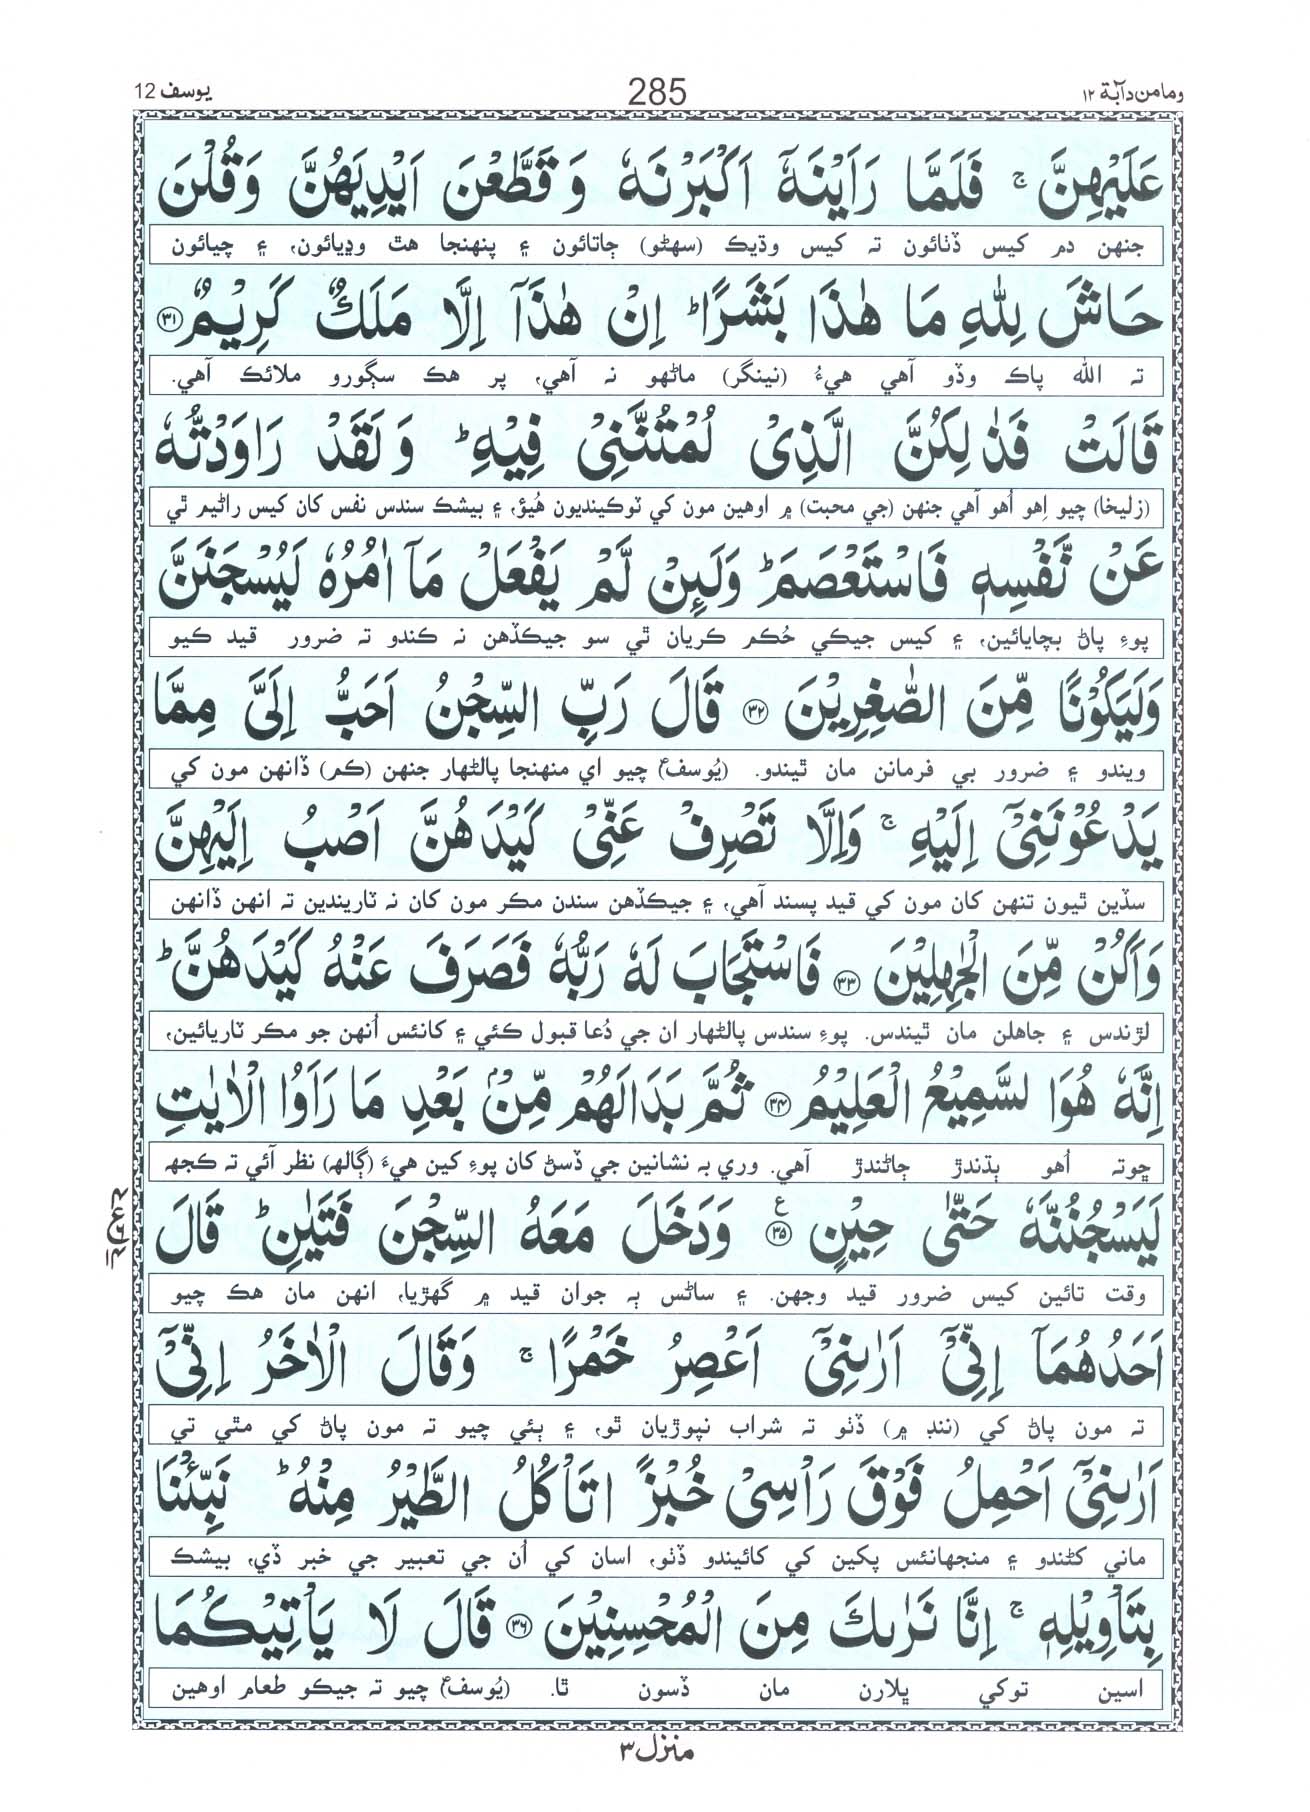 ومامن دآبة ١٢
285
يوسف 12
عَلَيْهِنَّ ۚ فَلَمَّا رَاَيْنَهٗٓ اَكْبَرْنَهٗ وَقَطَّعْنَ اَيْدِيَهُنَّ وَقُلْنَ
جنهن دم کيس ڏٺائون تہ کيس وڏيڪ (سهڻو) ڄاتائون ۽ پنهنجا هٿ وڍيائون، ۽ چيائون
حَاشَ لِلّٰهِ مَا هٰذَا بَشَرًا ؕ اِنْ هٰذَآ اِلَّا مَلَكٌ كَرِيْمٌ ﴿٣١﴾
تہ الله پاڪ وڏو آهي هيءُ (نينگر) ماڻهو نہ آهي، پر هڪ سڳورو ملائڪ آهي.
قَالَتْ فَذٰلِكُنَّ الَّذِيْ لُمْتُنَّنِيْ فِيْهِ ؕ وَلَقَدْ رَاوَدْتُّهٗ
(زليخا) چيو اِهو اُهو آهي جنهن (جي محبت) ۾ اوهين مون کي ٽوڪينديون هُيؤ، ۽ بيشڪ سندس نفس کان کيس راڻيم ٿي
عَنْ نَّفْسِهٖ فَاسْتَعْصَمَ ؕ وَلَىِٕنْ لَّمْ يَفْعَلْ مَآ اٰمُرُهٗ لَيُسْجَنَنَّ
پوءِ پاڻ بچايائين، ۽ کيس جيڪي حُڪم ڪريان ٿي سو جيڪڏهن نہ ڪندو تہ ضرور قيد ڪيو
وَلَيَكُوْنًا مِّنَ الصّٰغِرِيْنَ ﴿٣٢﴾ قَالَ رَبِّ السِّجْنُ اَحَبُّ اِلَيَّ مِمَّا
ويندو ۽ ضرور بي فرمانن مان ٿيندو. (يُوسفؑ) چيو اي منهنجا پالڻهار جنهن (ڪم) ڏانهن مون کي
يَدْعُوْنَنِيْٓ اِلَيْهِ ۚ وَاِلَّا تَصْرِفْ عَنِّيْ كَيْدَهُنَّ اَصْبُ اِلَيْهِنَّ
سڏين ٿيون تنهن کان مون کي قيد پسند آهي، ۽ جيڪڏهن سندن مڪر مون کان نہ ٽاريندين تہ انهن ڏانهن
وَاَكُنْ مِّنَ الْجٰهِلِيْنَ ﴿٣٣﴾ فَاسْتَجَابَ لَهٗ رَبُّهٗ فَصَرَفَ عَنْهُ كَيْدَهُنَّ ؕ
لڙندس ۽ جاهلن مان ٿيندس. پوءِ سندس پالڻهار ان جي دُعا قبول ڪئي ۽ کانئس اُنهن جو مڪر ٽاريائين،
اِنَّهٗ هُوَا لسَّمِيْعُ الْعَلِيْمُ ﴿٣٤﴾ ثُمَّ بَدَالَهُمْ مِّنْۢ بَعْدِ مَا رَاَوُا الْاٰيٰتِ
ڇوتہ اُهو ٻڌندڙ ڄاڻندڙ آهي. وري بہ نشانين جي ڏسڻ کان پوءِ کين هيءَ (ڳالهہ) نظر آئي تہ ڪجهہ
لَيَسْجُنُنَّهٗ حَتّٰى حِيْنٍ ﴿٣٥﴾ ع وَدَخَلَ مَعَهُ السِّجْنَ فَتَيٰنِ ؕ قَالَ
وقت تائين کيس ضرور قيد وجهن. ۽ ساڻس ٻہ جوان قيد ۾ گهڙيا، انهن مان هڪ چيو
اَحَدُهُمَآ اِنِّيْٓ اَرٰىنِيْٓ اَعْصِرُ خَمْرًا ۚ وَقَالَ الْاٰخَرُ اِنِّيْٓ
تہ مون پاڻ کي (ننڊ ۾) ڏٺو تہ شراب نپوڙيان ٿو، ۽ ٻئي چيو تہ مون پاڻ کي مٿي تي
اَرٰىنِيْٓ اَحْمِلُ فَوْقَ رَاْسِيْ خُبْزً اتَاْكُلُ الطَّيْرُ مِنْهُ ؕ نَبِّئْنَا
ماني کڻندو ۽ منجهانئس پکين کي کائيندو ڏٺو، اسان کي اُن جي تعبير جي خبر ڏي، بيشڪ
بِتَاْوِيْلِهٖ ۚ اِنَّا نَرٰىكَ مِنَ الْمُحْسِنِيْنَ ﴿٣٦﴾ قَالَ لَا يَاْتِيْكُمَا
اسين توکي ڀلارن مان ڏسون ٿا. (يُوسفؑ) چيو تہ جيڪو طعام اوهين
منزل ٣